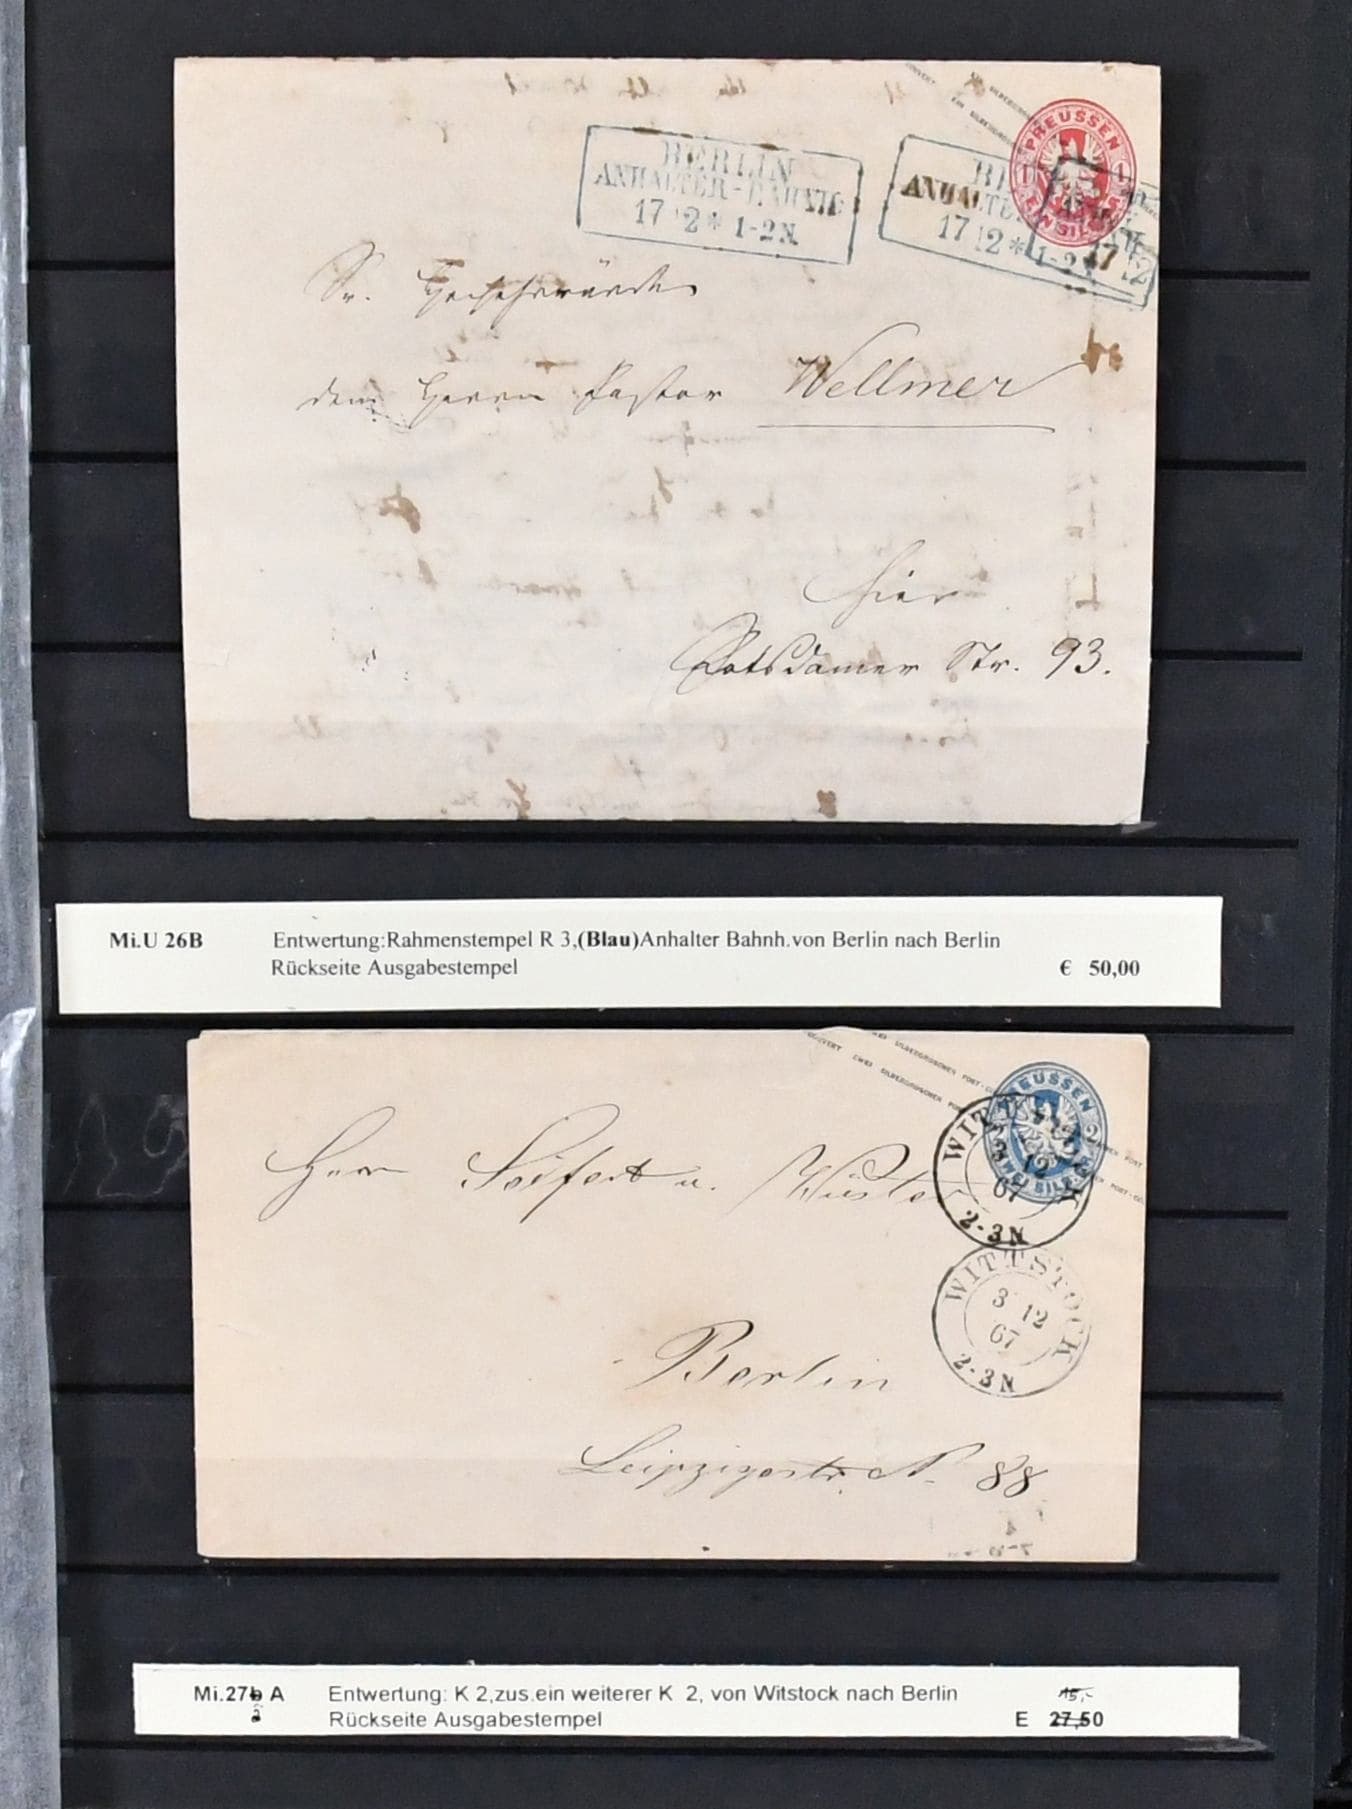 BERLIN
ANHALTER-BAHNH.
17 12 * 1-2 N.
ANHALTER
17 12 * 1-2
17 12
PREUSSEN
1 1
EIN SILB. GR.
Sr. Hochehrwürden
dem Herrn Pastor Wellmer
hier
Potsdamer Str. 93.
Mi.U 26B Entwertung:Rahmenstempel R 3,(Blau)Anhalter Bahnh.von Berlin nach Berlin
Rückseite Ausgabestempel € 50,00
COUVERT ZWEI SILBERGROSCHEN POST-
PREUSSEN
2 2
ZWEI SILB. GR.
WITTSTOCK
3 12
67
2-3 N
Herr Seifert u.
WITTSTOCK
3 12
67
2-3 N
Berlin
Leipzigerstr. N. 88
Mi.27b A Entwertung: K 2,zus.ein weiterer K 2, von Witstock nach Berlin 15,-
a Rückseite Ausgabestempel E 27,50